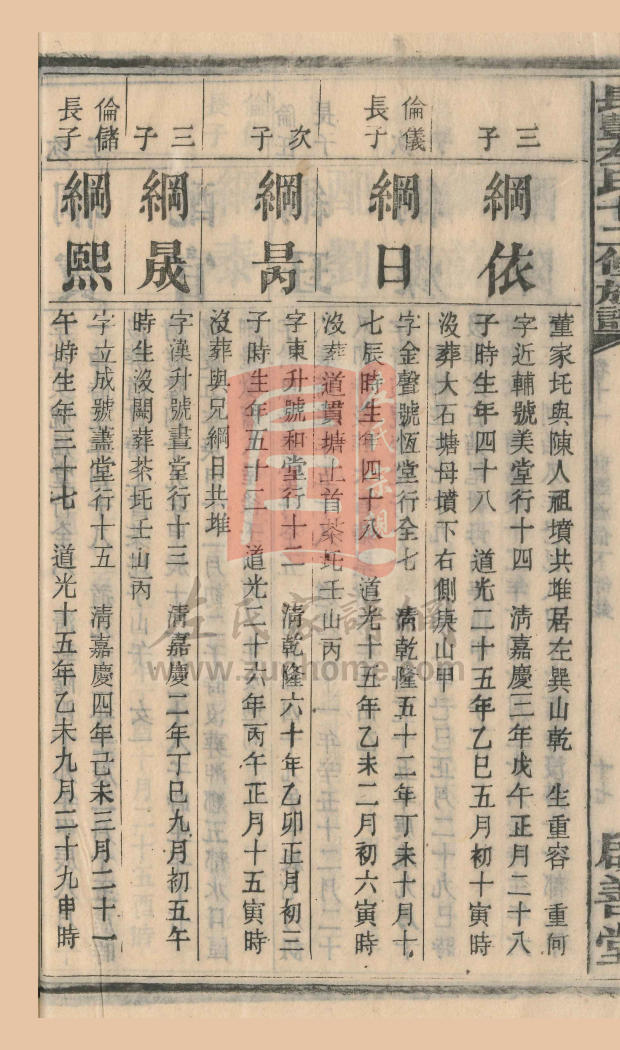 長豐左氏十二修族譜
十七
善堂
董家圫與陳人祖墳共堆居左巽山乾 生重容 重何
三子
綱依
字近輔號美堂行十四 清嘉慶三年戊午正月二十八
子時生年四十八 道光二十五年乙巳五月初十寅時
沒葬大石塘母墳下右側庚山甲
倫儀長子
綱日
字金聲號恆堂行全七 清乾隆五十二年丁未十月十
七辰時生年四十八 道光十五年乙未二月初六寅時
沒葬道貫塘上首茶圫壬山丙
次子
綱昺
字東升號和堂行十二 清乾隆六十年乙卯正月初三
子時生年五十二 道光二十六年丙午正月十五寅時
沒葬與兄綱日共堆
三子
綱晟
字漢升號晝堂行十三 清嘉慶二年丁巳九月初五午
時生沒闕葬茶圫壬山丙
倫儲長子
綱熙
字立成號藎堂行十五 清嘉慶四年己未三月二十一
午時生年三十七 道光十五年乙未九月二十九申時
左氏家譜網